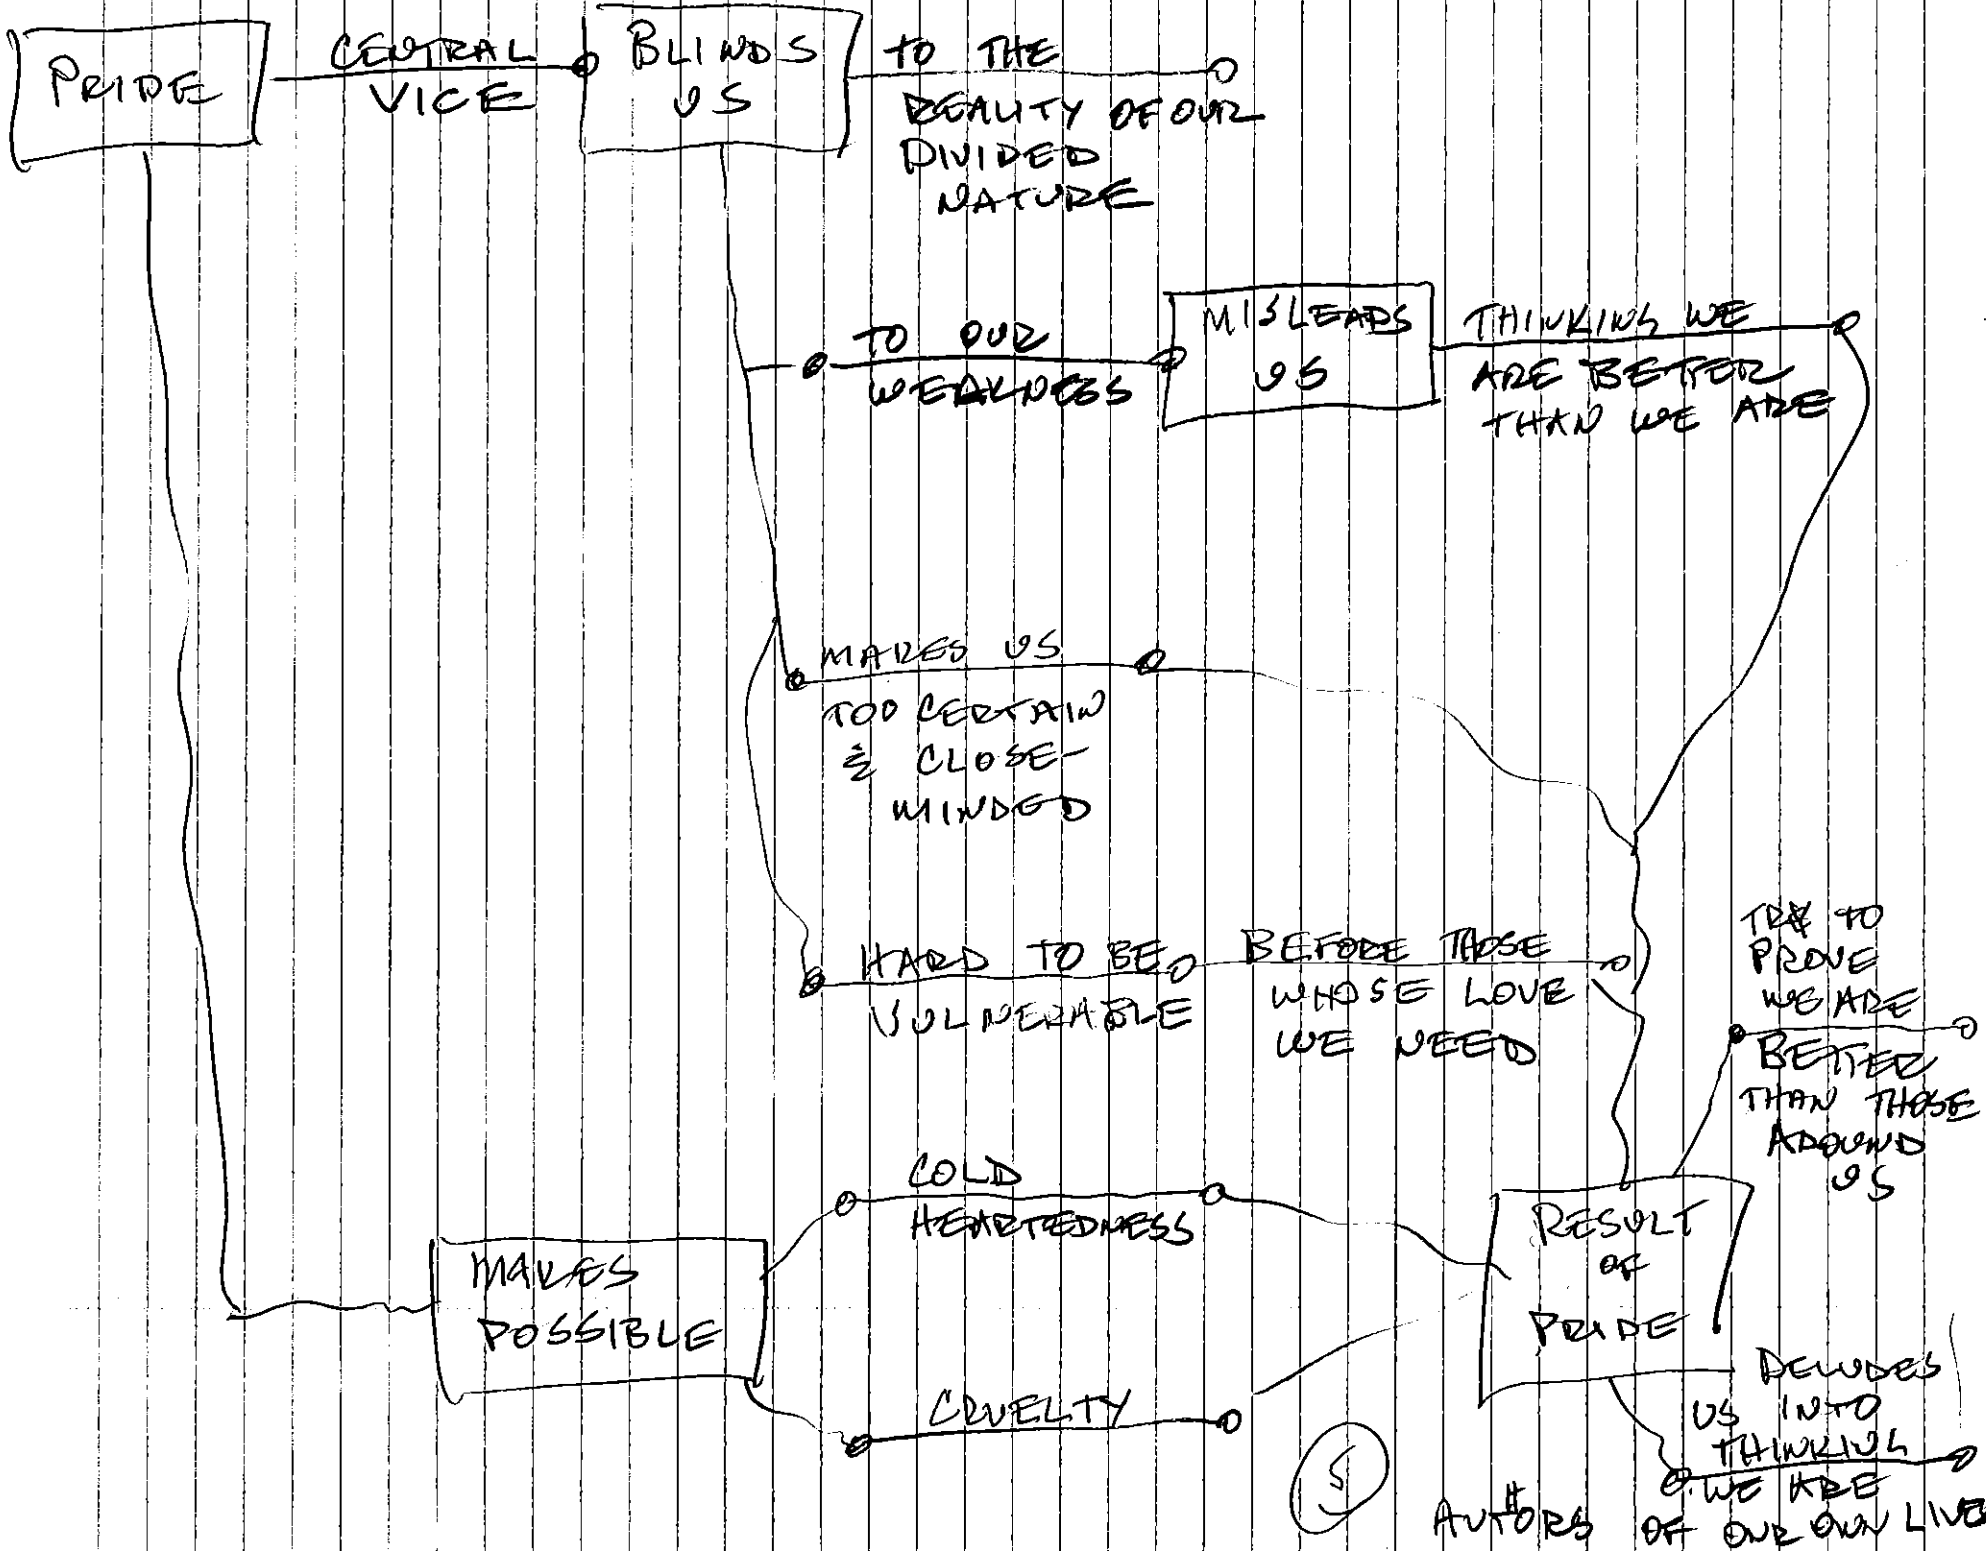 PRIDE
CENTRAL
VICE
BLINDS
US
TO THE
REALITY OF OUR
DIVIDED
NATURE
TO OUR
WEAKNESS
MISLEADS
US
THINKING WE
ARE BETTER
THAN WE ARE
MAKES US
TOO CERTAIN
& CLOSE-
MINDED
HARD TO BE
VULNERABLE
BEFORE THOSE
WHOSE LOVE
WE NEED
TRY TO
PROVE
WE ARE
BETTER
THAN THOSE
AROUND
US
COLD
HEARTEDNESS
MAKES
POSSIBLE
CRUELTY
RESULT
OF
PRIDE
DELUDES
US INTO
THINKING
WE ARE
AUTHORS OF OUR OWN LIVES
5